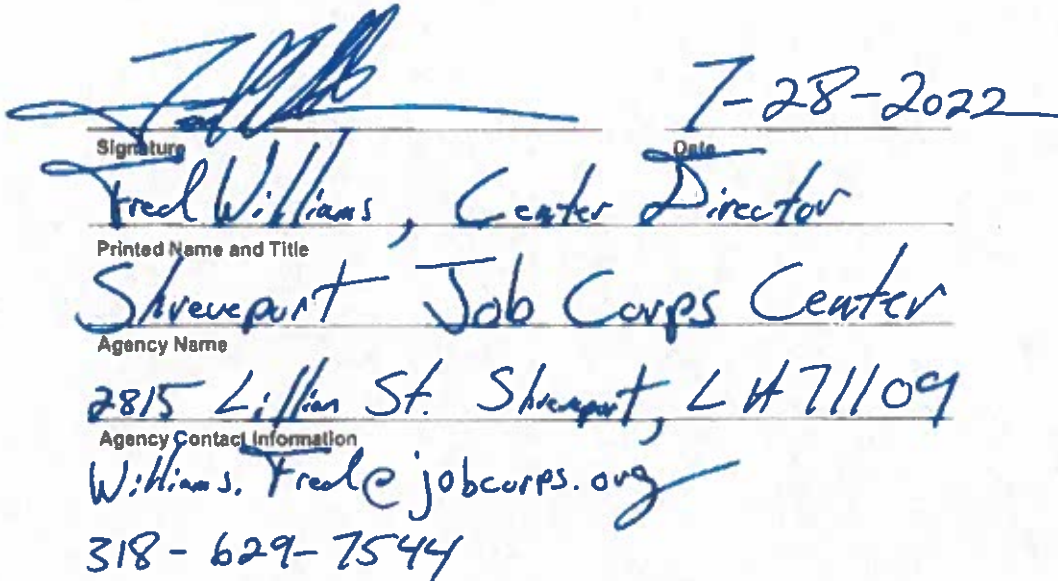 7-28-2022
Signature Date
Fred Williams, Center Director
Printed Name and Title
Shreveport Job Corps Center
Agency Name
2815 Lillian St. Shreveport, LA 71109
Agency Contact Information
Williams.Fred@jobcorps.org
318-629-7544